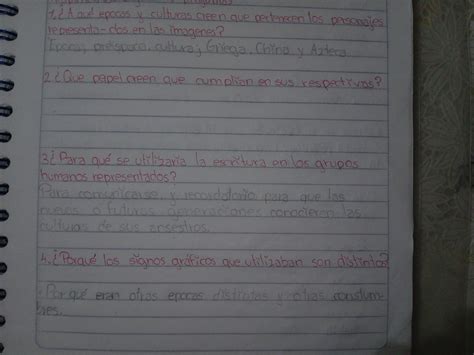 1.¿A qué epocas y culturas creen que pertenecen los personajes
representa-dos en las imagenes?
Epocas, prehispano, cultura, Griega, China y Azteca
2.¿Que papel creen que cumplian en sus respectivas?
3.¿Para qué se utilizaria la escritura en los grupos
humanos representados?
Para comunicarse y recordatorio para que las
nuevas o futuras generaciones conocieran las
culturas de sus ansestros.
4.¿Porqué los signos gráficos que utilizaban son distintos?
Por qué eran otras epocas distintas y otras constum-
bres.